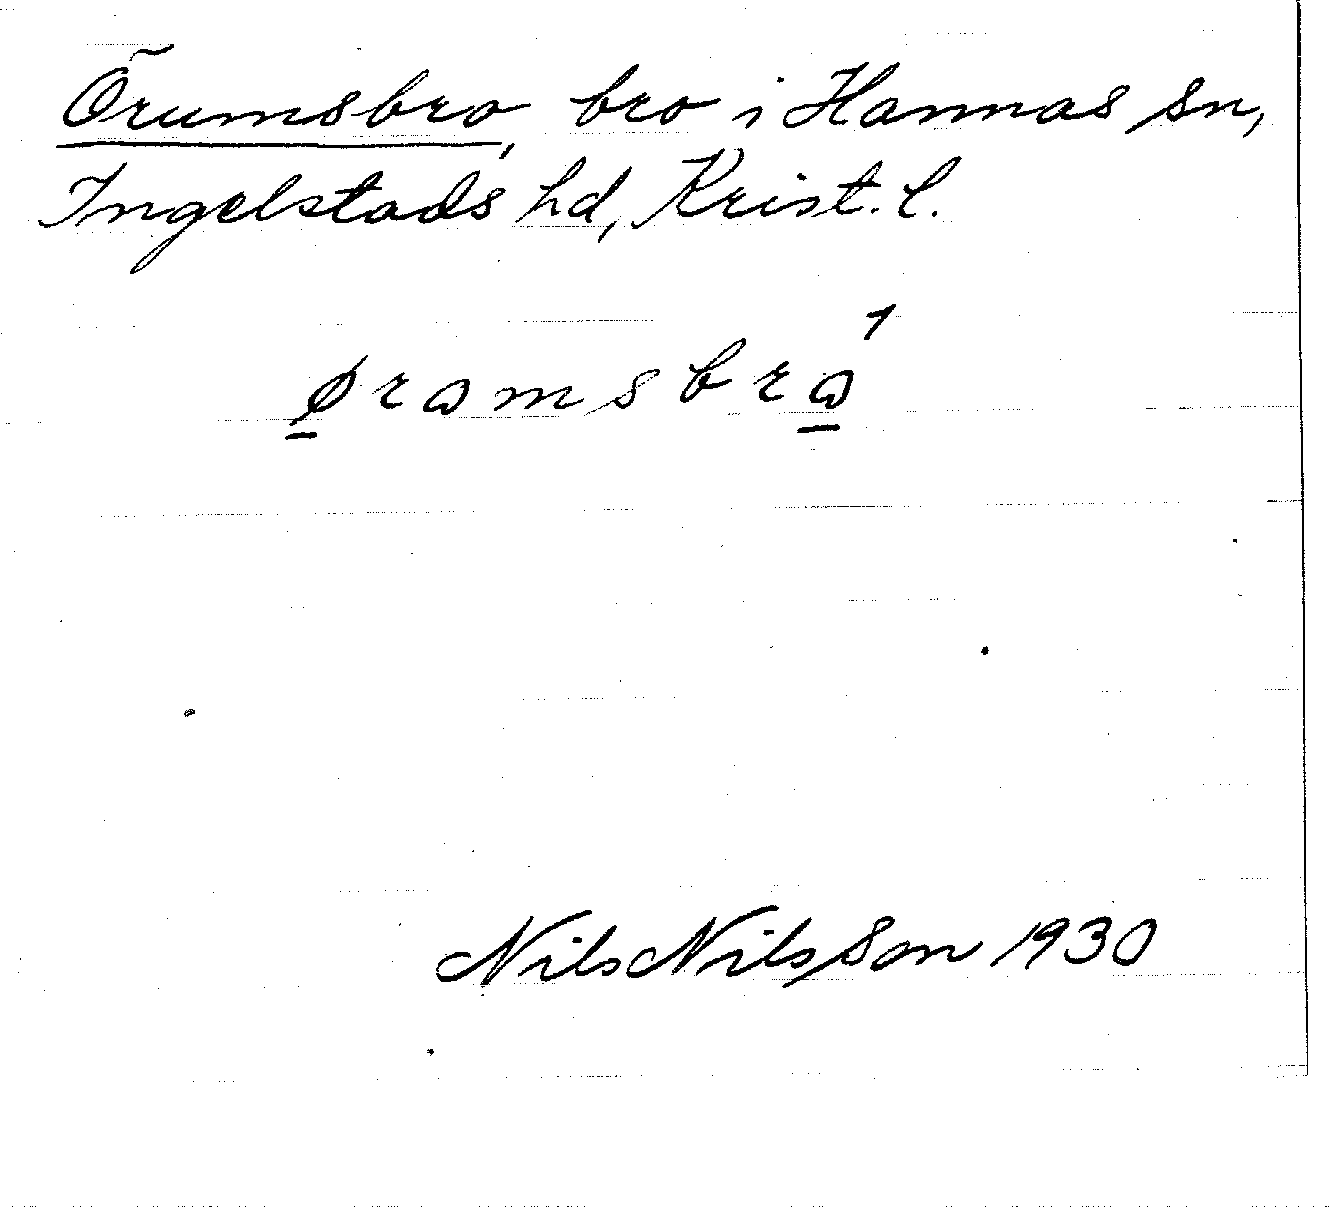 Örumsbro, bro i Hannas sn,
Ingelstads hd, Krist. l.
ø̱rωmsbrω̱1
Nils Nilsson 1930